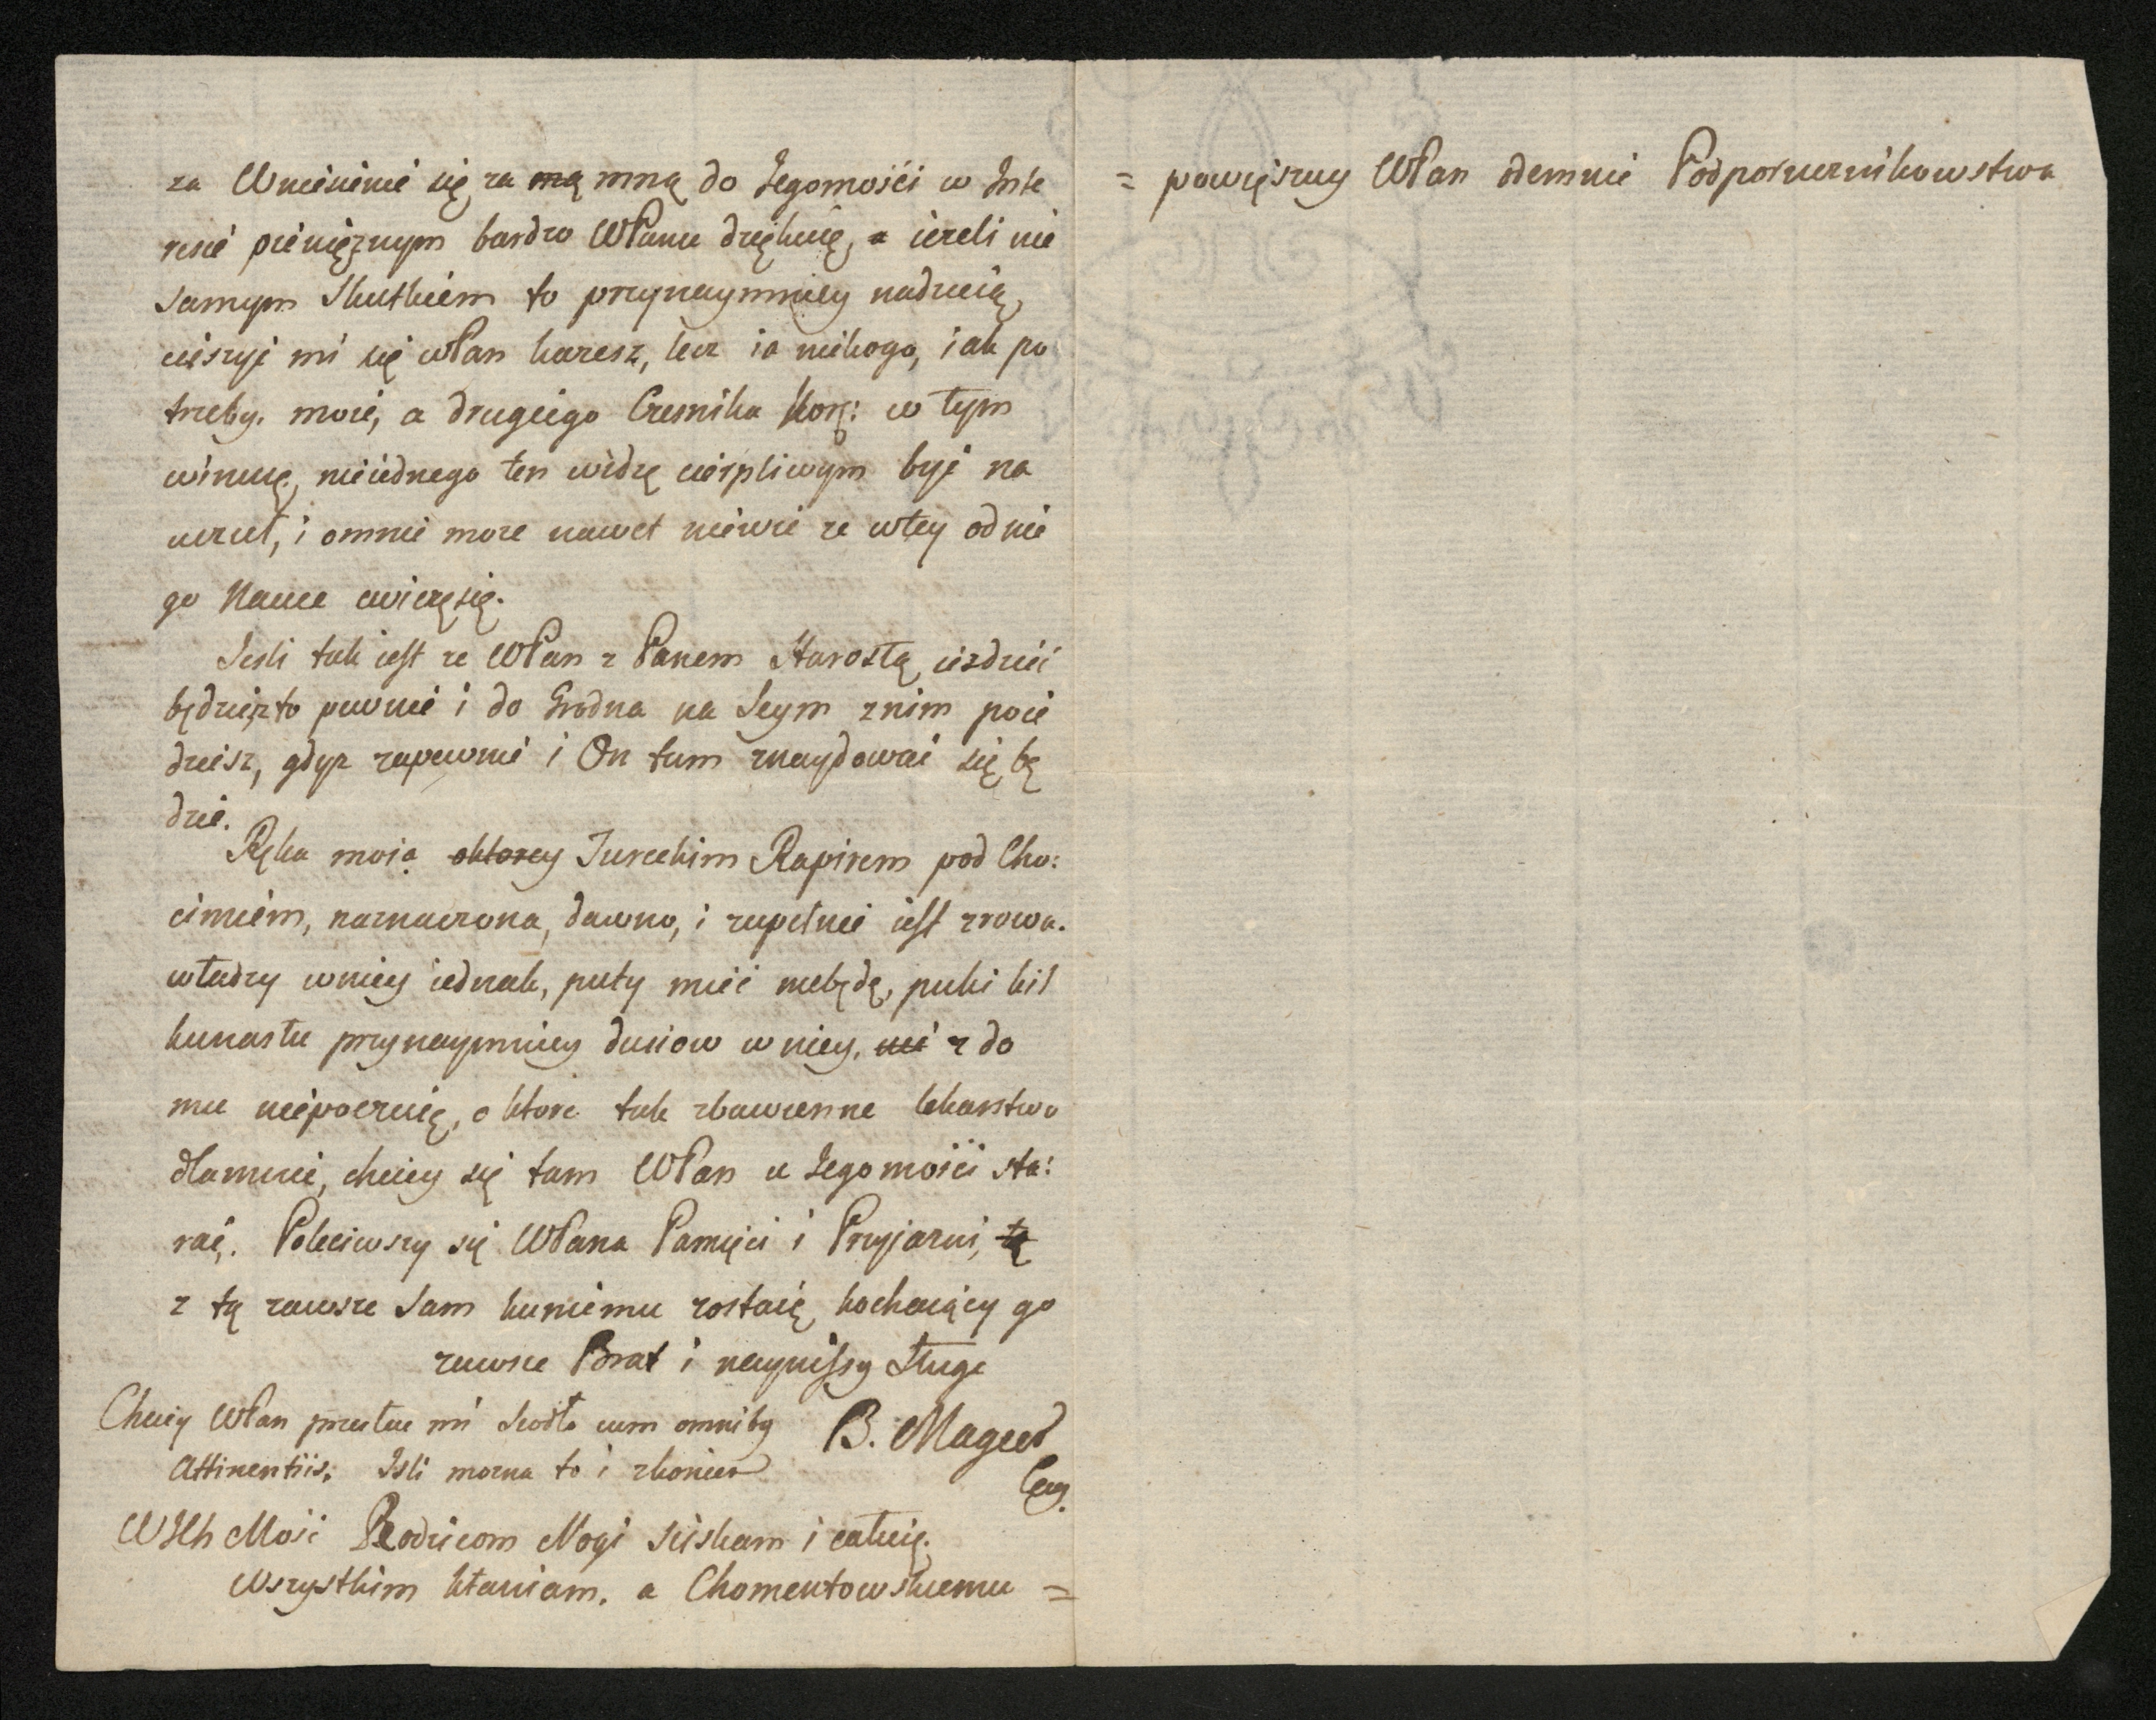 za Wniesienie się za mą mną do Jegomości w Inte
resie pienięznym bardzo WPanu dziękuię, a iezeli nie
samym skutkiem to przynaymniey nadzieią
cieszyć mi się wPan karesz, lecz ia nikogo, iak po
trzeby. moie, a drugiego Czesnika Kor: w tym
winuię, nieiednego ten widzę cierpliwym być na
uczuł, i omnie moze nawet niewie ze wtey od nie
go Nauce cwiczę się.
Jesli tak iest ze WPan z Panem Starostą iezdzić
będziesz to pewnie i do Grodna na Seym znim poie
dziesz, gdyz zapewnie i On tam znaydować się bę
dzie.
Ręka moia oktorey Tureckim Rapirem pod Cho:
cimiem, naznaczona, dawno, i zupełnie iest zrowa.
władzy wniey iednak, puty mieć niebędę, puki kil
kunastu przynaymniey dusiow w niey, nie z do
mu niepoczuię, o ktore tak zbawienne lekarstwo
dlamnie, chciey się tam WPan u Jegomości sta:
rać. Poleciwszy się WPana Pamięci i Przyjazni, tę
z tą zawsze sam kuniemu zostaię kochaiący go
zawsze Brat i naynisszy Sługa
Chciey WPan przesłac mi Siodło cum omniby
Attinentiis; Isli mozna to i zkoniem
B. Magiet
WJch Mość Rodzicom Nogi sciskam i całuię.
Wszystkim kłaniam. a Chomentowskiemu =
= powięszuy WPan odemnie Podporucznikowstwa